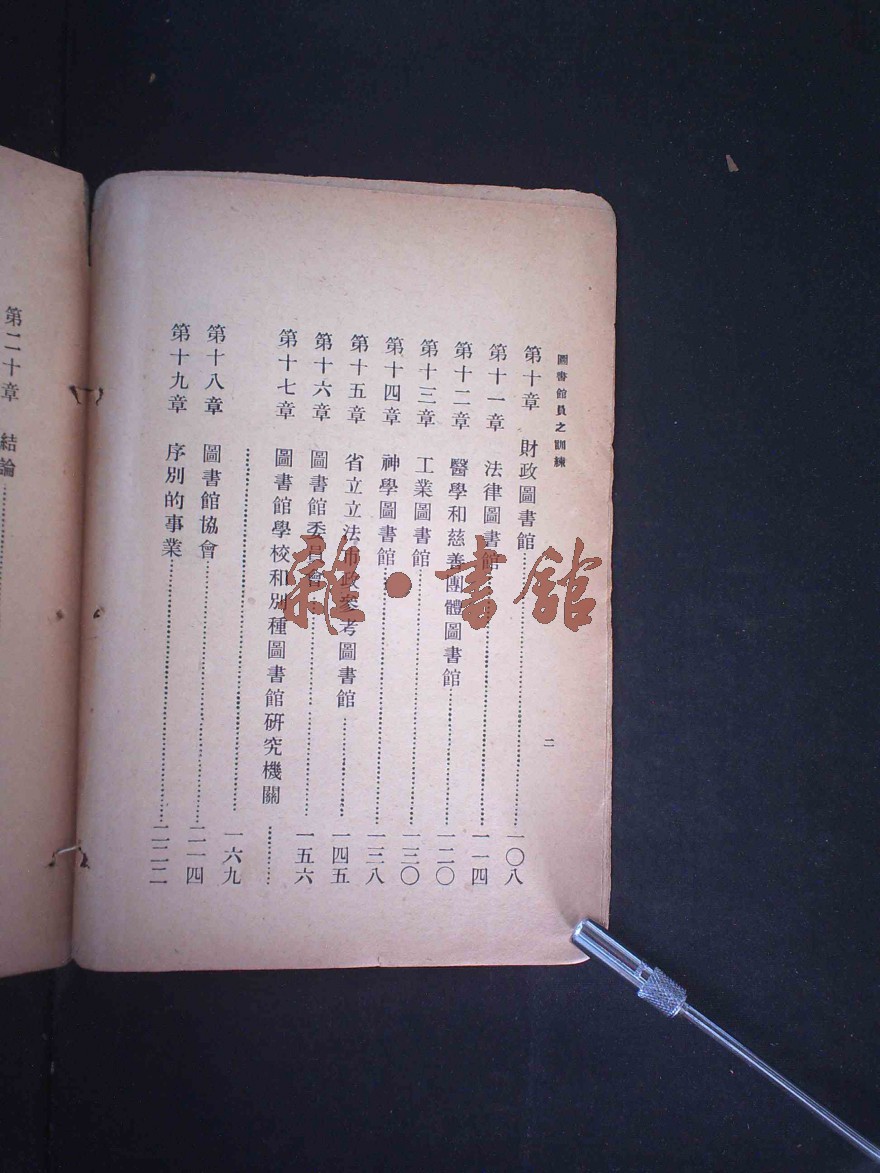 圖書館員之訓練
二
第十章 財政圖書館………一〇八
第十一章 法律圖書館………一一四
第十二章 醫學和慈善團體圖書館………一二〇
第十三章 工業圖書館………一三〇
第十四章 神學圖書館………一三八
第十五章 省立立法市政參考圖書館………一四五
第十六章 圖書館委員會………一五六
第十七章 圖書館學校和別種圖書館研究機關………
………一六九
第十八章 圖書館協會………二一四
第十九章 序別的事業………二二二
第二十章 結論………
雜·書館